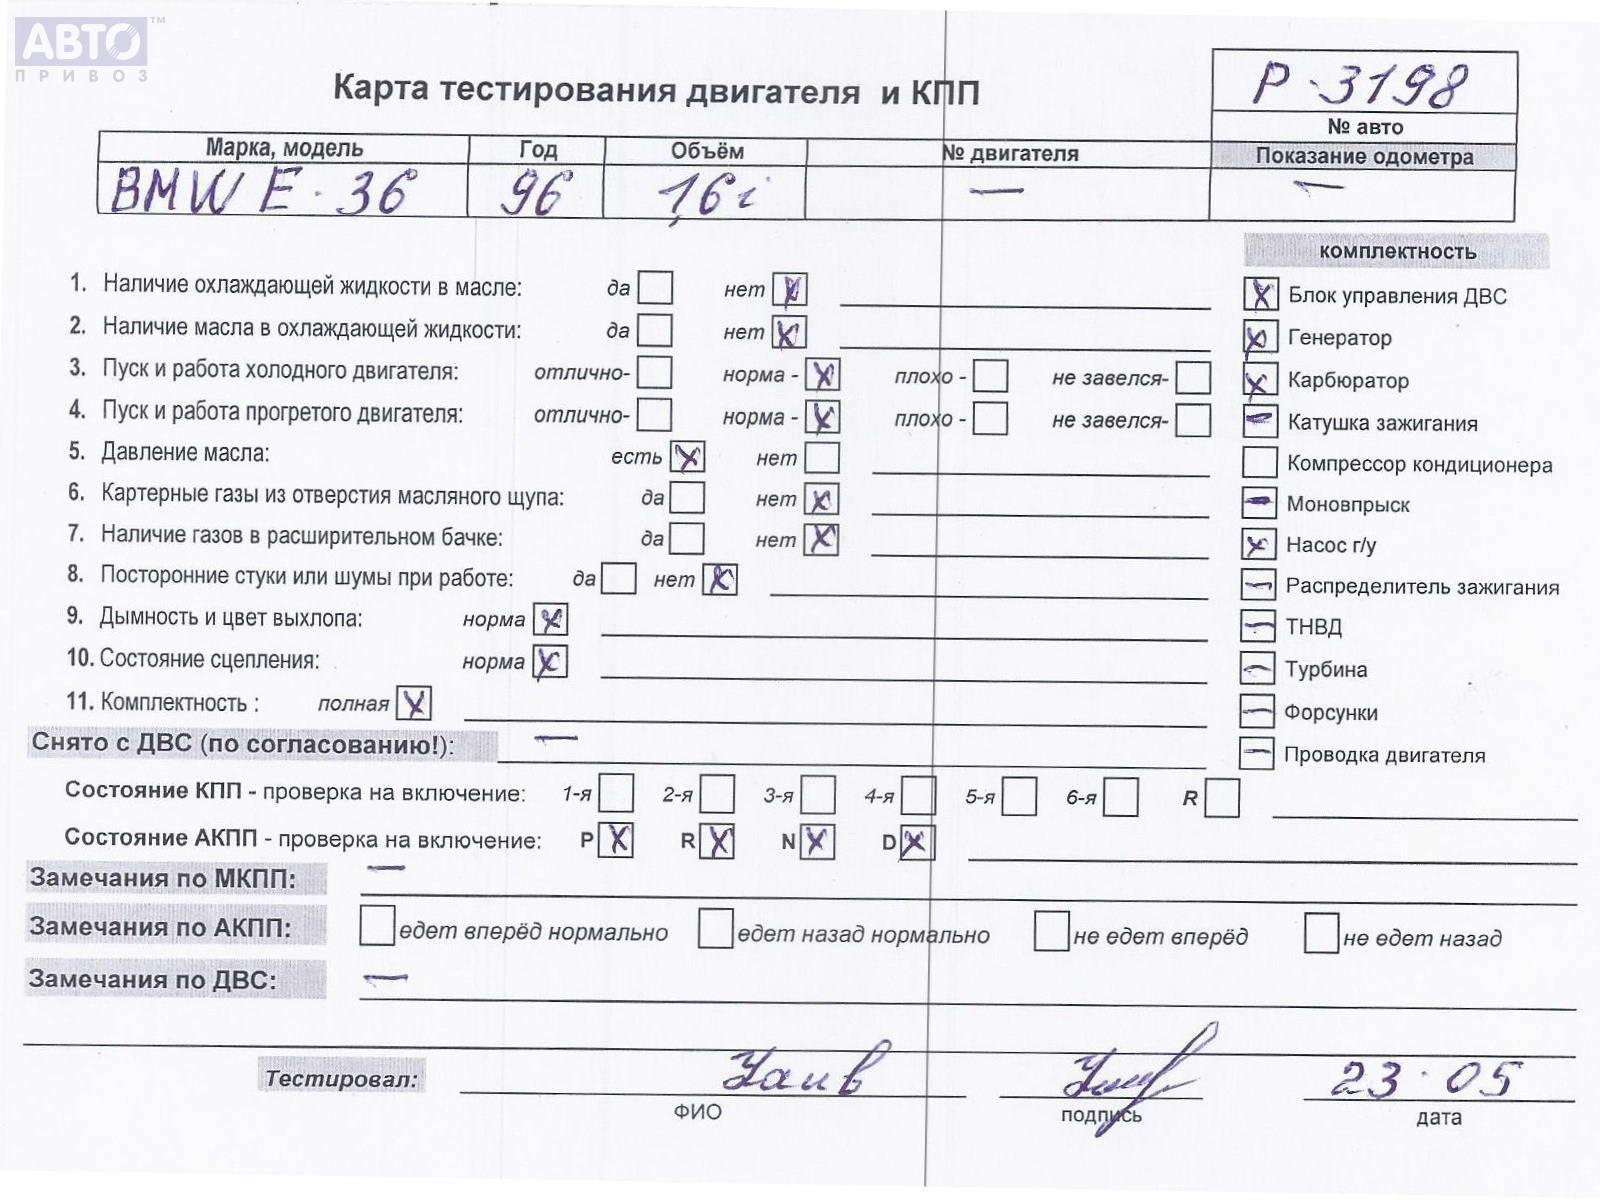 АВТО™
ПРИВОЗ
Карта тестирования двигателя и КПП
Р-3198
№ авто
Марка, модель Год Объём № двигателя Показание одометра
BMW E-36 96 1,6i — —
комплектность
1. Наличие охлаждающей жидкости в масле: да нет X
Блок управления ДВС X
2. Наличие масла в охлаждающей жидкости: да нет X
Генератор X
3. Пуск и работа холодного двигателя: отлично- норма - X плохо - не завелся-
Карбюратор X
4. Пуск и работа прогретого двигателя: отлично- норма - X плохо - не завелся-
Катушка зажигания —
5. Давление масла: есть X нет
Компрессор кондиционера
6. Картерные газы из отверстия масляного щупа: да нет X
Моновпрыск —
7. Наличие газов в расширительном бачке: да нет X
Насос г/у X
8. Посторонние стуки или шумы при работе: да нет X
Распределитель зажигания —
9. Дымность и цвет выхлопа: норма X
ТНВД —
10. Состояние сцепления: норма X
Турбина —
11. Комплектность : полная X
Форсунки —
Снято с ДВС (по согласованию!): —
Проводка двигателя —
Состояние КПП - проверка на включение: 1-я 2-я 3-я 4-я 5-я 6-я R
Состояние АКПП - проверка на включение: P X R X N X D X
Замечания по МКПП: —
Замечания по АКПП: едет вперёд нормально едет назад нормально не едет вперёд не едет назад
Замечания по ДВС: —
Тестировал: 23.05
ФИО подпись дата